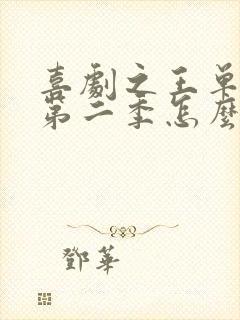 喜劇之王单
第二季怎麼
鄧華